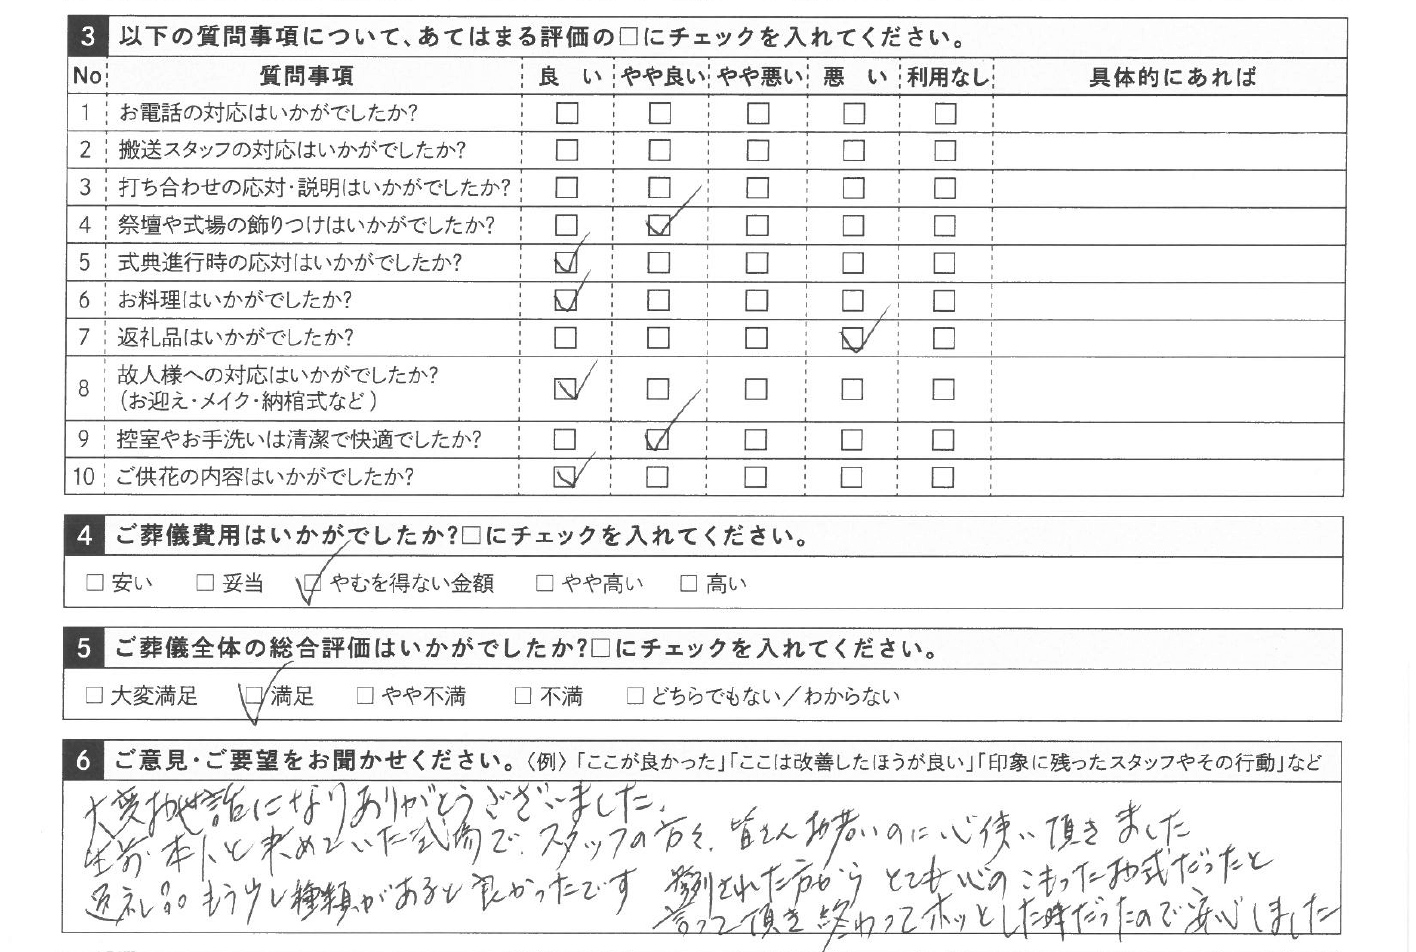 3 以下の質問事項について、あてはまる評価の□にチェックを入れてください。
No 質問事項 良い やや良い やや悪い 悪い 利用なし 具体的にあれば
1 お電話の対応はいかがでしたか? □ □ □ □ □
2 搬送スタッフの対応はいかがでしたか? □ □ □ □ □
3 打ち合わせの応対・説明はいかがでしたか? □ □ □ □ □
4 祭壇や式場の飾りつけはいかがでしたか? □ ☑ □ □ □
5 式典進行時の応対はいかがでしたか? ☑ □ □ □ □
6 お料理はいかがでしたか? ☑ □ □ □ □
7 返礼品はいかがでしたか? □ □ □ ☑ □
8 故人様への対応はいかがでしたか? ☑ □ □ □ □
(お迎え・メイク・納棺式など)
9 控室やお手洗いは清潔で快適でしたか? □ ☑ □ □ □
10 ご供花の内容はいかがでしたか? ☑ □ □ □ □
4 ご葬儀費用はいかがでしたか?□にチェックを入れてください。
□ 安い □ 妥当 ☑ やむを得ない金額 □ やや高い □ 高い
5 ご葬儀全体の総合評価はいかがでしたか?□にチェックを入れてください。
□ 大変満足 ☑ 満足 □ やや不満 □ 不満 □ どちらでもない/わからない
6 ご意見・ご要望をお聞かせください。〈例〉「ここが良かった」「ここは改善したほうが良い」「印象に残ったスタッフやその行動」など
大変お世話になりありがとうございました。
生前、本人と決めていた式場で、スタッフの方々、皆さんお若いのに心使い頂きました
返礼品もう少し種類があると良かったです 参列された方からとても心のこもったお式だったと
言って頂き終わってホッとした時だったので安心しました